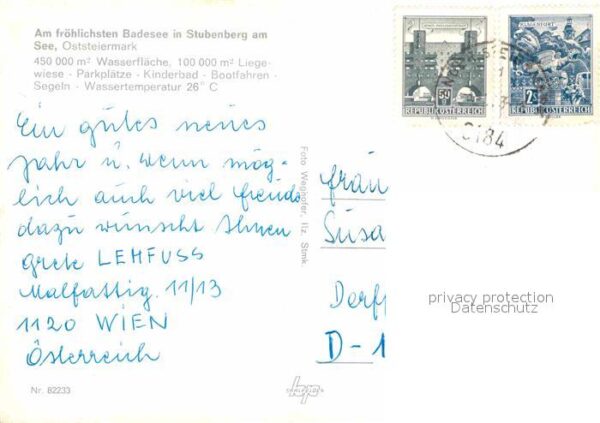 Am fröhlichsten Badesee in Stubenberg am
See, Oststeiermark
450 000 m² Wasserfläche, 100 000 m² Liege-
wiese · Parkplätze · Kinderbad · Bootfahren ·
Segeln · Wassertemperatur 26° C
Ein gutes neues
Jahr u. wenn mög-
lich auch viel freude
dazu wünscht Ihnen
grete LEHFUSS
Malfattig. 11/13
1120 WIEN
Österreich
Nr. 82233
Foto Weghofer, Ilz, Stmk.
REPUBLIK ÖSTERREICH
KLAGENFURT
2S
REPUBLIK ÖSTERREICH
C184
Frau
Susa
Derff
D-1
privacy protection
Datenschutz